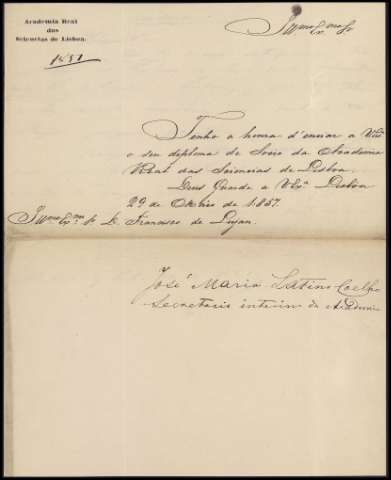 Academia Real
das
Sciencias de Lisboa.
Illmo Exmo Sr
Tenho a honra d'enviar a VEx
o seu diploma de Socio da Academia
Real das Sciencias de Lisboa.
Deus Guarde a VExª Lisboa
29 de de 1857.
Illmo Exmo Sr D. Francisco de Lujan.
José Maria Latino Coelho
Secretario interino da Academia